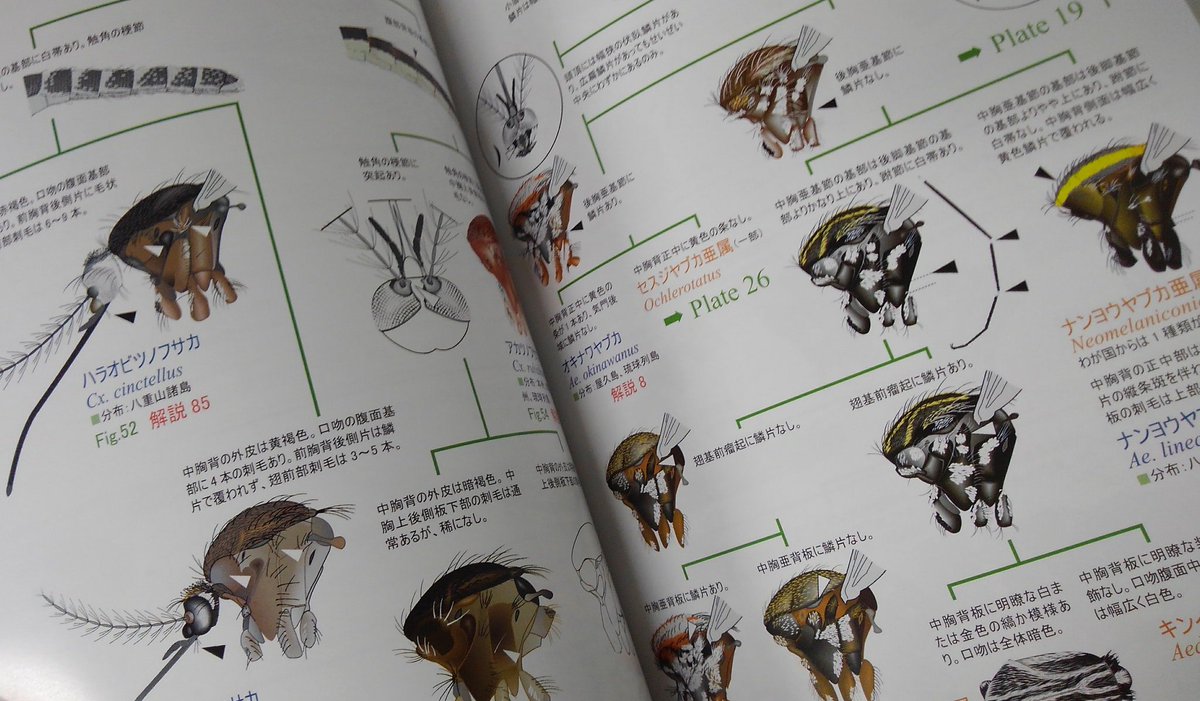 の基部に白帯あり。触角の梗節
口吻の腹面基部
前胸背後側片に毛状
部刺毛は6~9本。
ハラオビツノフサカ
Cx. cinctellus
■分布:八重山諸島
Fig.52 解説 85
中胸背の外皮は黄褐色。口吻の腹面基
部に4本の刺毛あり。前胸背後側片は鱗
片で覆われず、翅前部刺毛は3~5本。
触角の梗節に
突起あり。
中胸背の外皮は暗褐色。中
胸上後側板下部の刺毛は通
常あるが、稀になし。
頭頂には幅狭の伏臥鱗片があ
り。広鼻鱗片があってもせいぜい
中央にわずかにあるのみ。
➡ Plate 19
後胸亜基節に
鱗片なし。
後胸亜基節に
鱗片あり。
中胸亜基節の基部は後脚基節
の基部よりやや上にあり。跗節に
白帯なし。中胸背側面は幅広く
黄色鱗片で覆われる。
中胸亜基節の基部は後脚基節の基
部よりかなり上にあり。跗節に白帯あり。
中胸背正中に黄色の条なし。
セスジヤブカ亜属(一部)
Ochlerotatus
➡ Plate 26
中胸背正中に黄色の
条が1本あり、気門後
域に鱗片なし。
オキナワヤブカ
Ae. okinawanus
■分布:屋久島、琉球列島
解説 8
ナンヨウヤブカ亜属
Neomelaniconi
わが国からは1種類
中胸背の正中部は
片の縦条斑を伴わ
板の刺毛は上部
ナンヨウヤブ
Ae. linea
■分布:八
翅基前瘤起に鱗片あり。
翅基前瘤起に鱗片なし。
中胸亜背板に鱗片なし。
中胸亜背板に鱗片あり。
中胸背板に明瞭な白ま
たは金色の縞か模様あ
り。口吻は全体暗色。
中胸背板に明瞭な
飾なし。口吻腹面中
は幅広く白色。